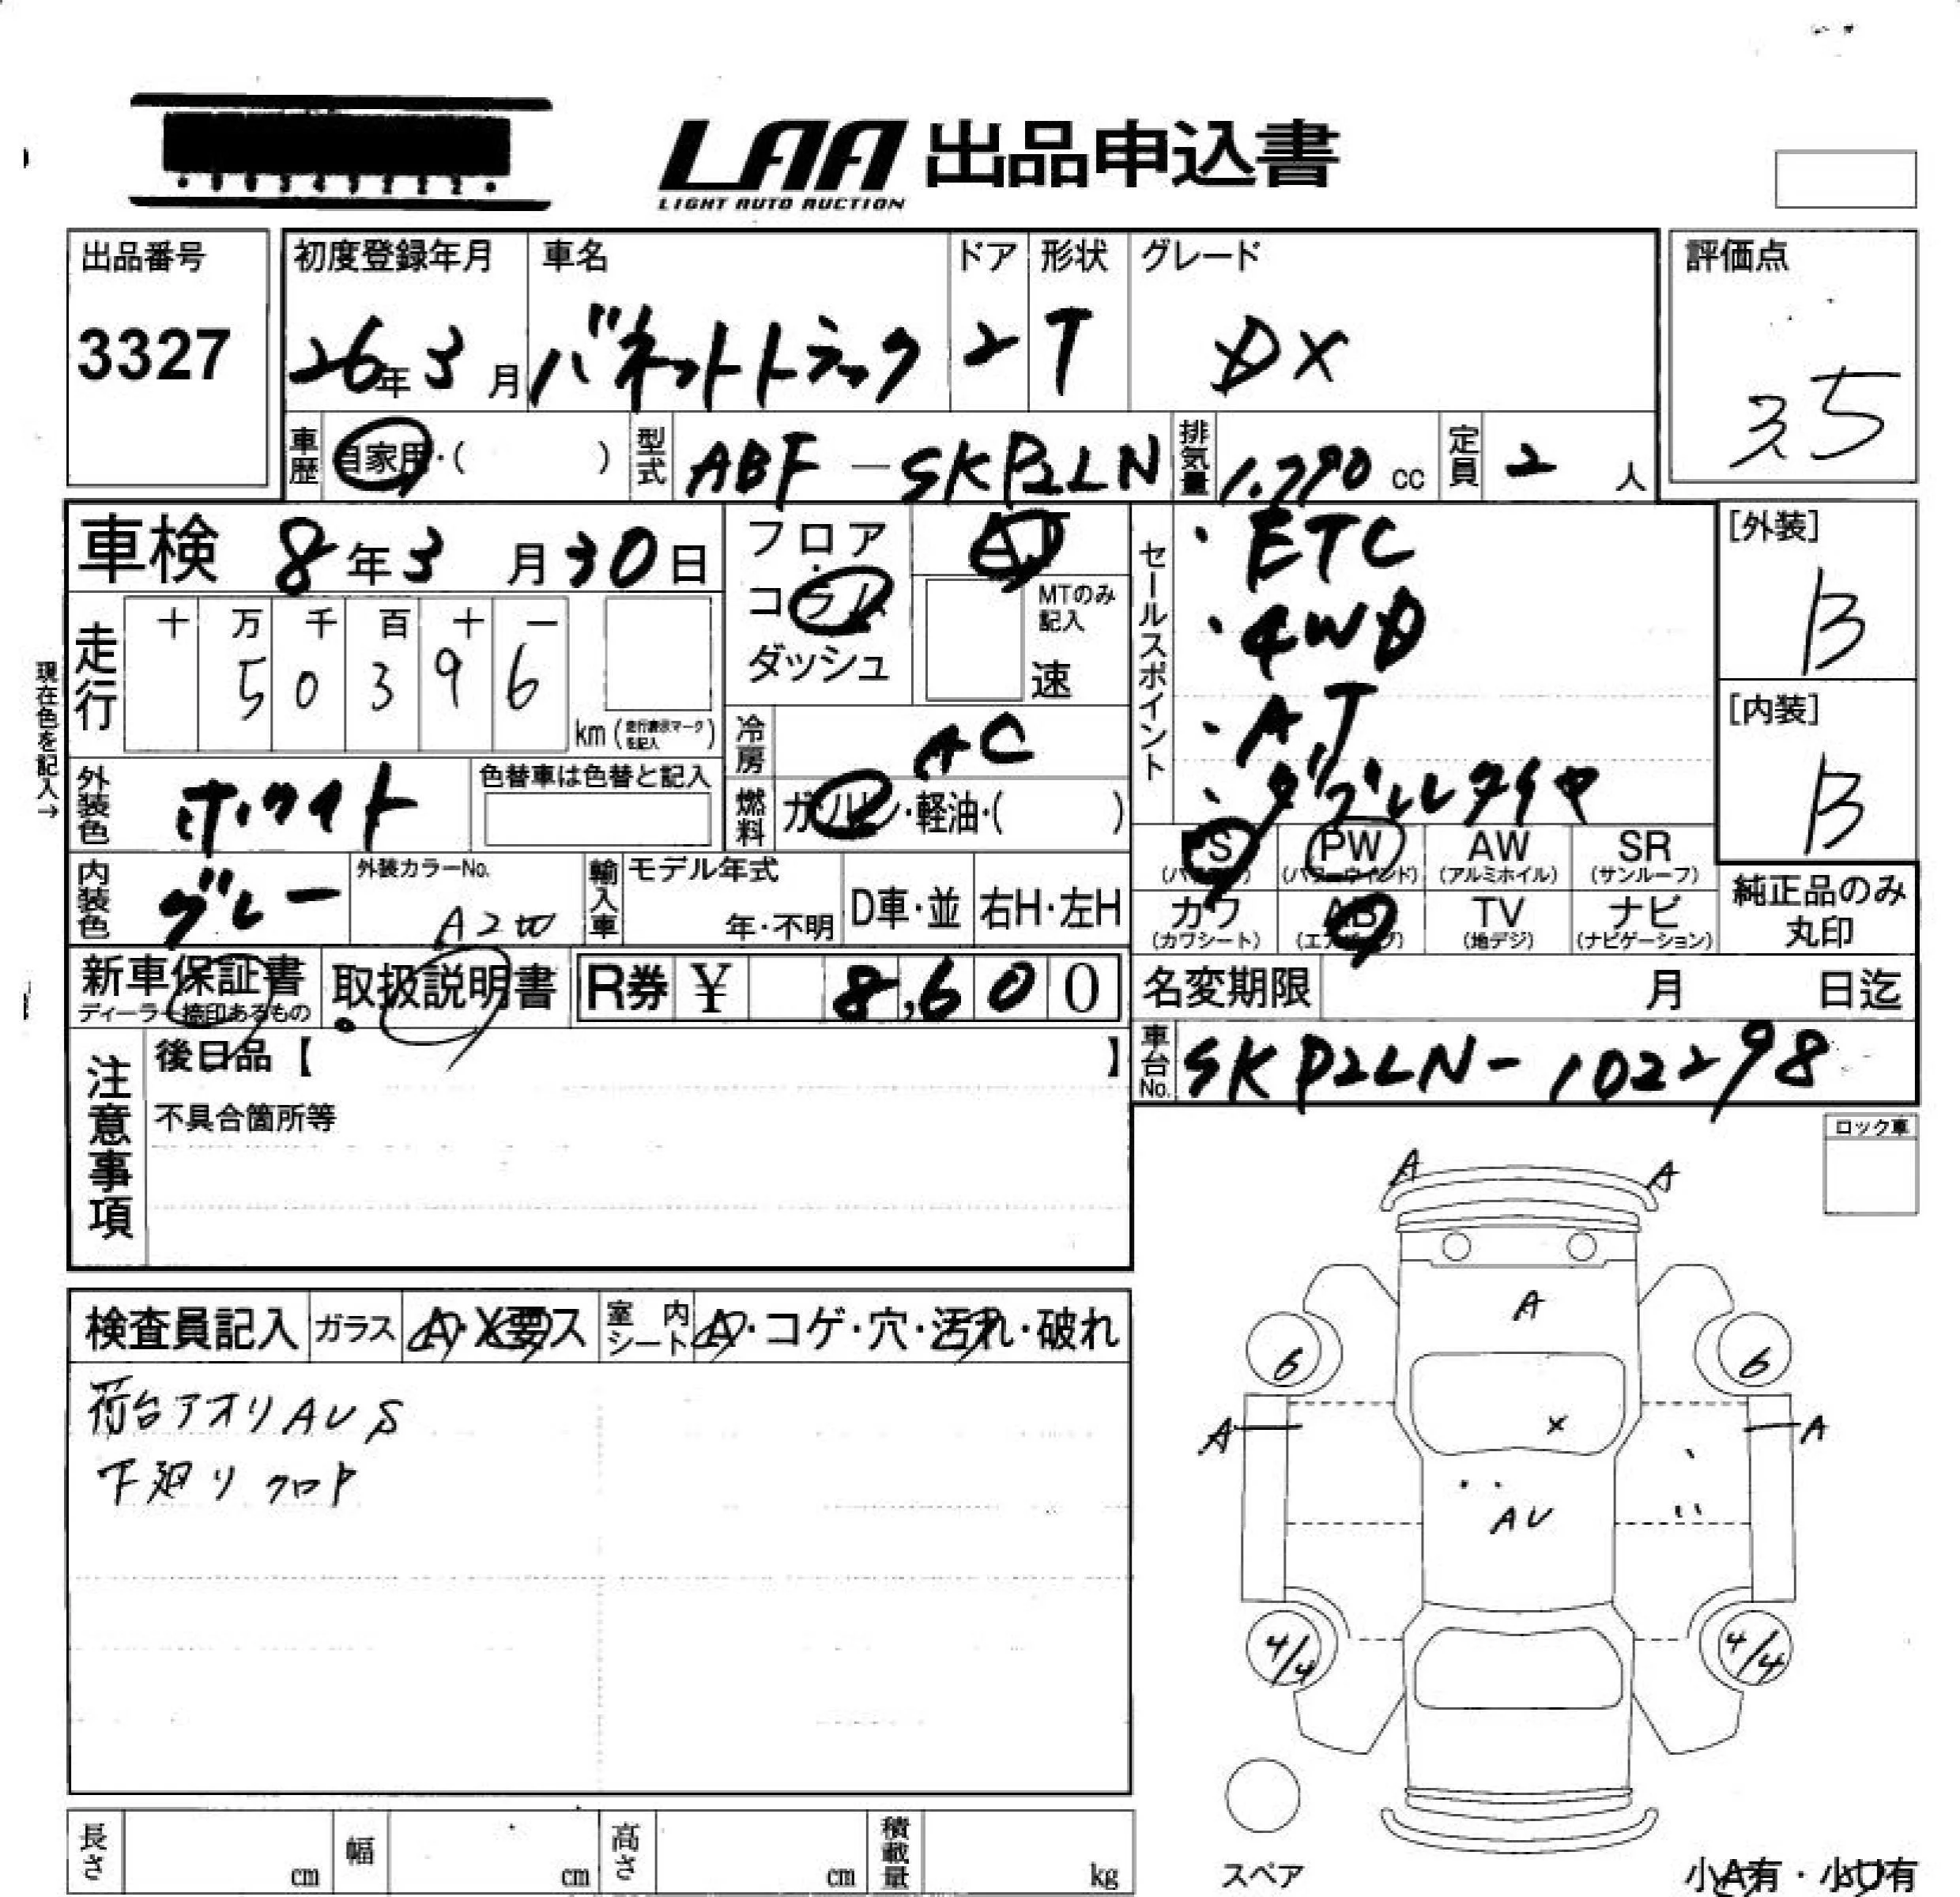 LAA 出品申込書
LIGHT AUTO AUCTION
出品番号
3327
初度登録年月
26年3月
車名
バネットトラック
ドア
2
形状
T
グレード
DX
評価点
3.5
車歴 自家用・( )
型式 ABF-SKP2LN
排気量 1.790 cc
定員 2 人
車検 8年3月30日
フロア・コラム ダッシュ
AT
MTのみ記入
速
セールスポイント
・ETC
・4WD
・AT
・ダブルタイヤ
[外装]
B
[内装]
B
現在色を記入→
走行
十 万 千 百 十 一
5 0 3 9 6
km(走行表示マークを記入)
冷房 AC
外装色 ホワイト
色替車は色替と記入
燃料 ガソリン・軽油・( )
PS PW AW SR
(パワステ) (パワーウィンド) (アルミホイル) (サンルーフ)
カワ AB TV ナビ
(カワシート) (エアバッグ) (地デジ) (ナビゲーション)
純正品のみ
丸印
内装色 グレー
外装カラーNo.
輸入車
モデル年式
年・不明
D車・並
右H・左H
新車保証書
ディーラー捺印あるもの
取扱説明書
R券 ¥ 8,600
名変期限 月 日迄
車台No. SKP2LN-102298
注意事項
後日品【 】
不具合箇所等
ロック車
検査員記入
ガラス A・X要ス
室内シート A・コゲ・穴・汚れ・破れ
荷台アオリAUS
下廻りクロP
A A
A
6 6
A X A
AU
4/4 4/4
スペア
小A有・小U有
長さ cm
幅 cm
高さ cm
積載量 kg